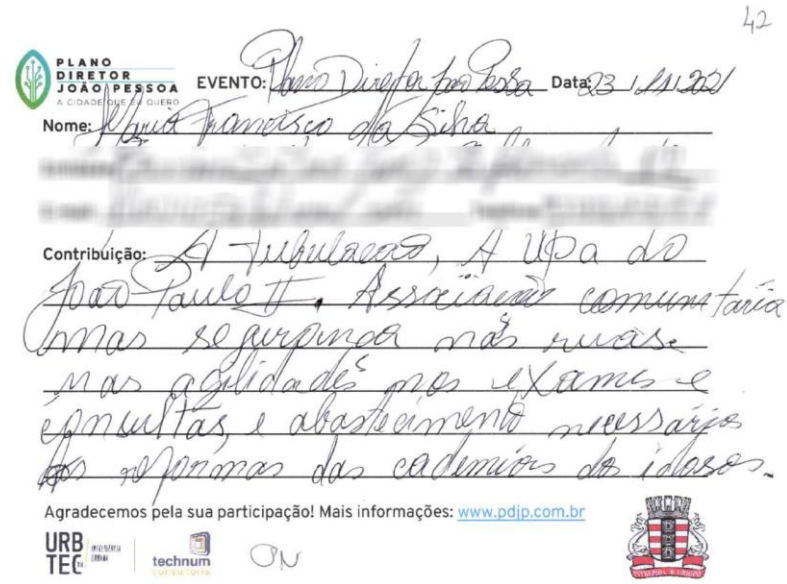 42
PLANO
DIRETOR
JOÃO PESSOA
A CIDADE QUE EU QUERO
EVENTO: Plano Diretor João Pessoa Data: 23/11/2021
Nome: Maria Francisco da Silva
Contribuição: A Tubulacao, A Upa do
João Paulo II. Associacao comunitária
mas segurança nas ruas.
mas agilidades nos exames e
consultas, e abastecimento necessários
As reformas das cademias do idosos.
Agradecemos pela sua participação! Mais informações: www.pdjp.com.br
URB
TEC
INTELIGÊNCIA
URBANA
technum
consultoria
ON